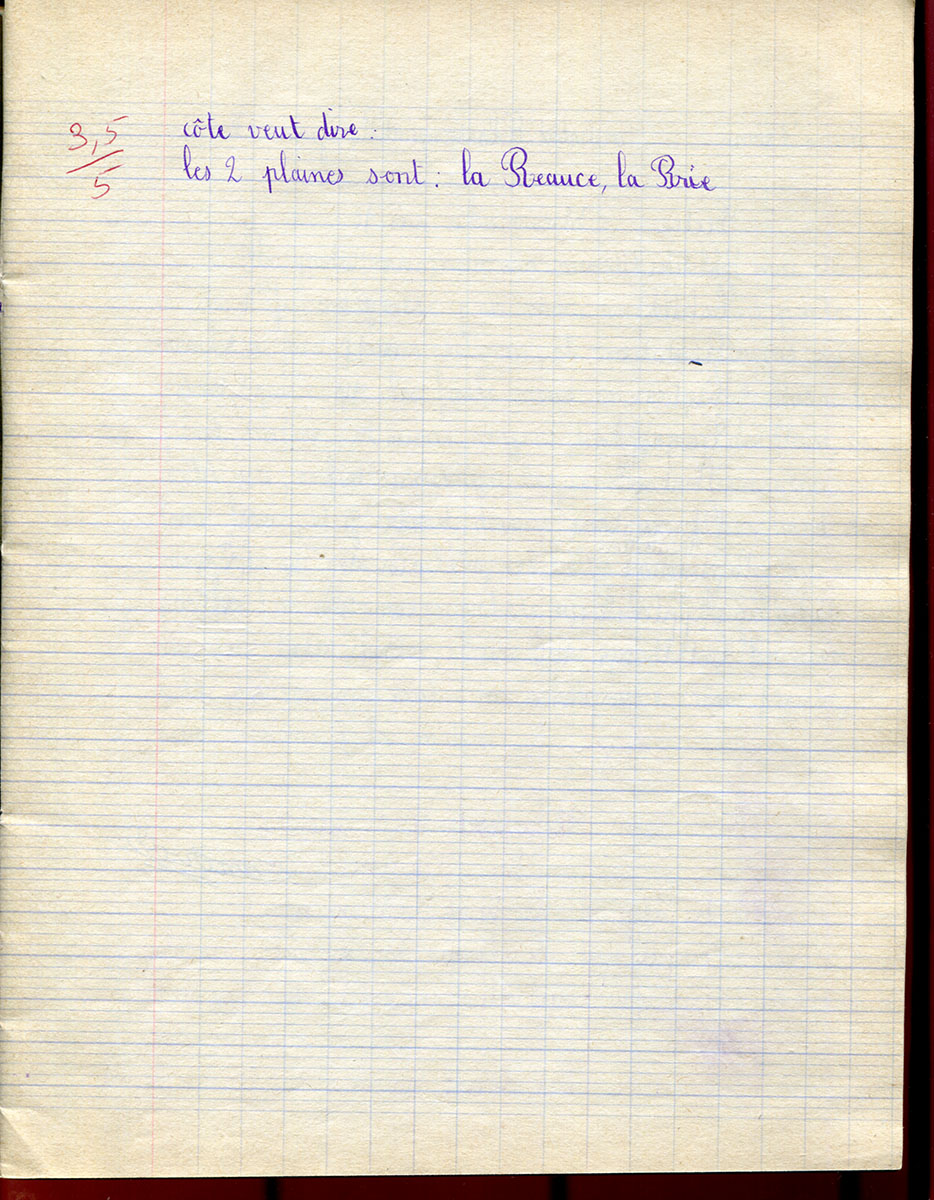 3,5
5
côte veut dire :
les 2 plaines sont : la Beauce, la Brie